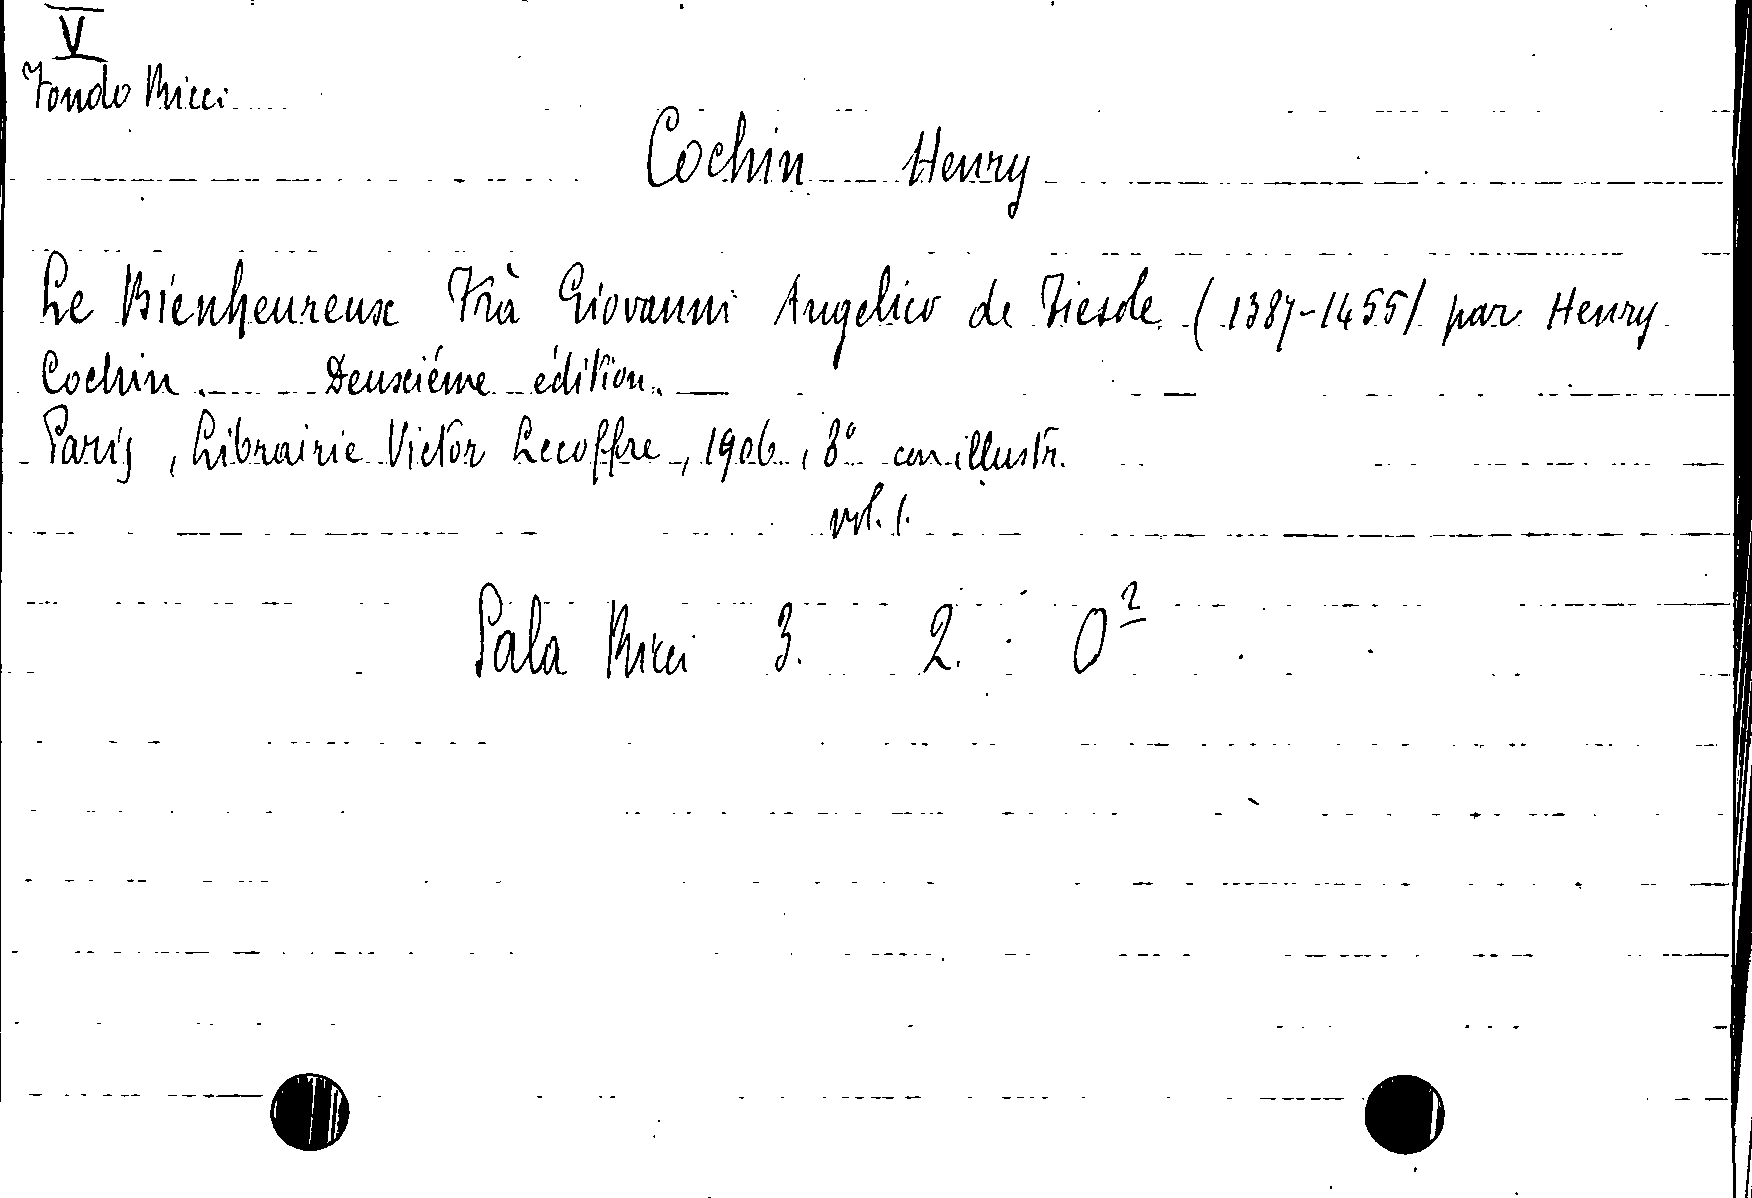 V
Fondo Ricci
Cochin Henry
Le Bienheureux Frà Giovanni Angelico de Fiesole (1387-1455) par Henry
Cochin. Deuxiéme édition.
Paris, Librairie Victor Lecoffre, 1906, 8° con illustr.
vol. 1.
Sala Ricci 3. 2. O²